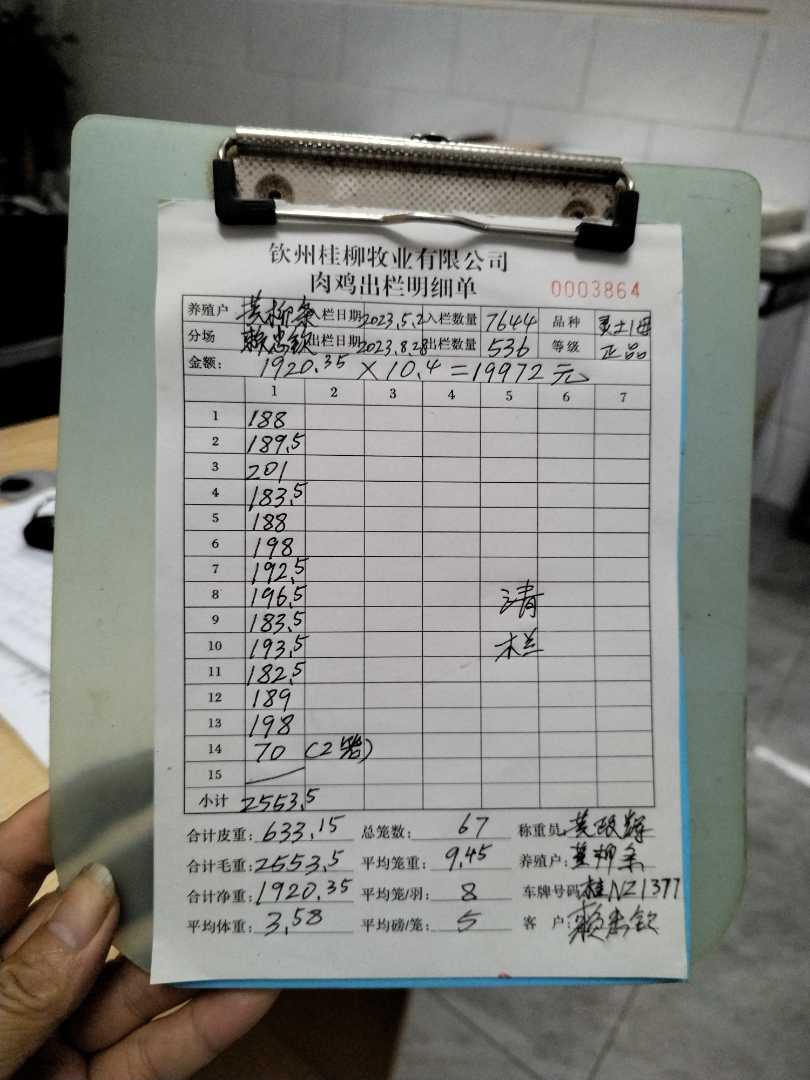 钦州桂柳牧业有限公司
肉鸡出栏明细单 0003864
养殖户 黄柳条 入栏日期 2023.5.2 入栏数量 7644 品种 土1母
分场 赖忠钦 出栏日期 2023.8.28 出栏数量 536 等级 正品
金额: 1920.35 × 10.4 = 19972 元
1 2 3 4 5 6 7
1 188
2 189.5
3 201
4 183.5
5 188
6 198
7 192.5
8 196.5 清
9 183.5
10 193.5 栏
11 182.5
12 189
13 198
14 70 (2笼)
15
小计 2553.5
合计皮重: 633.15 总笼数: 67 称重员: 黄
合计毛重: 2553.5 平均笼重: 9.45 养殖户: 黄柳条
合计净重: 1920.35 平均笼/羽: 8 车牌号码: 桂NZ1377
平均体重: 3.58 平均磅/笼: 5 客 户: 赖忠钦